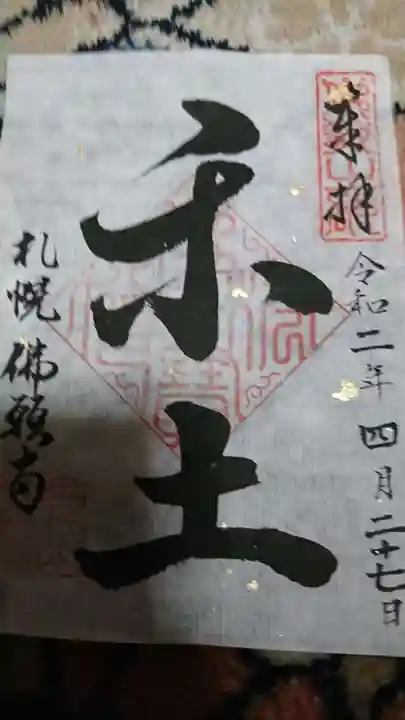 奉拝
令和二年四月二十七日
楽土
札幌佛願寺